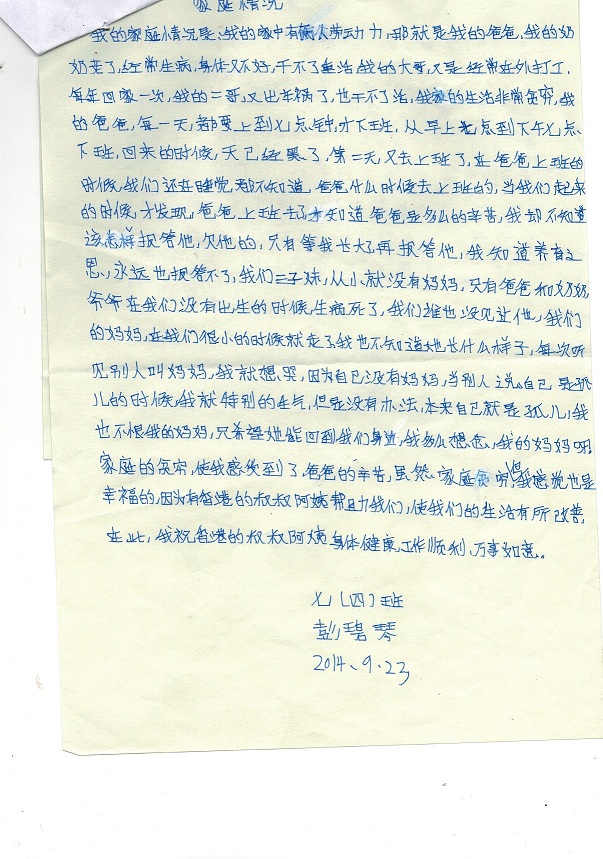 家庭情况
我的家庭情况是，我的家中有两人劳动力，那就是我的爸爸，我的奶
奶老了，经常生病，身体又不好，干不了重活，我的大哥，又是经常在外打工，
每年回家一次，我的二哥，又出车祸了，也干不了活，我家的生活非常贫穷，我
的爸爸，每一天，都要上到七点钟，才下班，从早上七点到下午七点，
下班，回来的时候，天已经黑了，第二天，又去上班了，在爸爸上班的
时候，我们还在睡觉，都不知道，爸爸什么时候去上班的，当我们起来
的时候，才发现，爸爸上班去了，才知道爸爸是多么的辛苦，我却不知道
该怎样报答他，欠他的，只有等我长大了再报答他，我知道养育之
恩，永远也报答不了，我们三子妹，从小就没有妈妈，只有爸爸和奶奶，
爷爷在我们没有出生的时候，生病死了，我们谁也没见过他，我们
的妈妈，在我们很小的时候就走了，我也不知道她长什么样子，每次听
见别人叫妈妈，我就想哭，因为自己没有妈妈，当别人说，自己是孤
儿的时候，我就特别的生气，但是没有办法，本来自己就是孤儿，我
也不恨我的妈妈，只希望她能回到我们身边，我多么想念，我的妈妈呀，
家庭的贫穷，使我感受到了爸爸的辛苦，虽然，家庭贫穷，但我感觉也是
幸福的，因为有香港的叔叔阿姨帮助我们，使我们的生活有所改善，
在此，我祝香港的叔叔阿姨身体健康，工作顺利，万事如意。
七（四）班
彭碧琴
2014、9.23